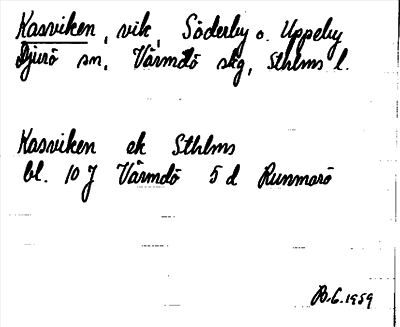 Kasviken, vik, Söderby o. Uppeby
Djurö sn, Värmdö skg, Sthlms l.
Kasviken ek Sthlms
bl. 10 J Värmdö 5 d Runmarö
B.G. 1959